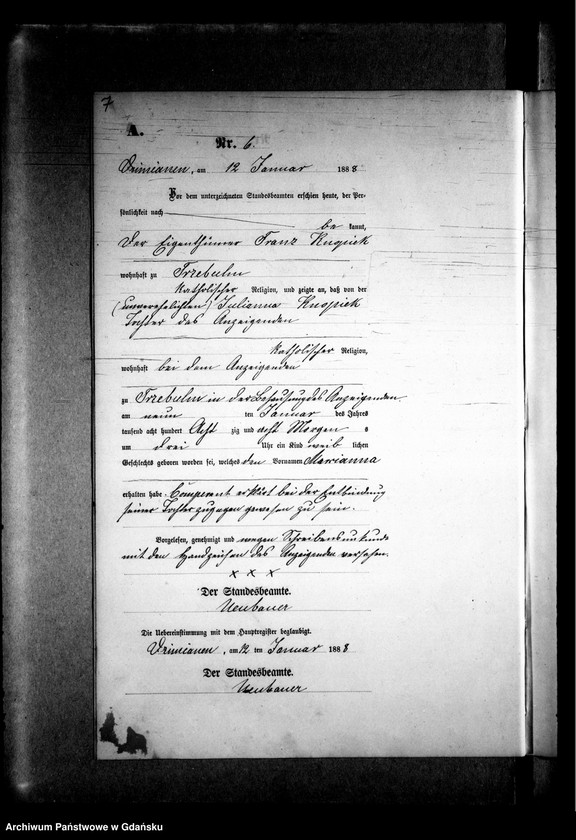 7
A.
Nr. 6.
am 12 Januar 1888
Vor dem unterzeichneten Standesbeamten erschien heute, der Per-
sönlichkeit nach
be kannt,
Der Eigenthümer Franz Knopiek
wohnhaft zu Trzebuhn
katholischer Religion, und zeigte an, daß von der
(unverehelichten) Julianna Knopiek
Tochter des Anzeigenden
katholischer Religion,
wohnhaft bei dem Anzeigenden
zu Trzebuhn in der Behausung des Anzeigenden
am neun ten Januar des Jahres
tausend acht hundert Acht zig und acht Morgen s
um drei Uhr ein Kind weib lichen
Geschlechts geboren worden sei, welches den Vornamen Marianna
erhalten habe. Comparent erklärt bei der Entbindung
seiner Tochter zugegen gewesen zu sein.
Vorgelesen, genehmigt und wegen Schreibensunkunde
mit den Handzeichen des Anzeigenden versehen.
x x x
Der Standesbeamte.
Neubauer
Die Uebereinstimmung mit dem Hauptregister beglaubigt.
am 12 ten Januar 1888
Der Standesbeamte.
Neubauer
Archiwum Państwowe w Gdańsku